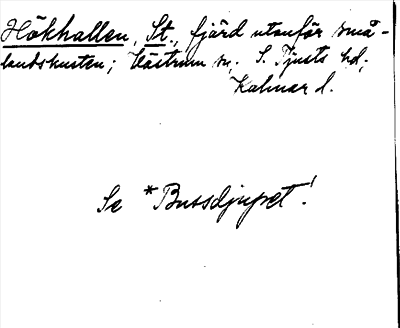 Hökhallen, St., fjärd utanför små-
landskusten; Västrum sn. S. Tjusts hd,
Kalmar l.
Se *Bussdjupet!